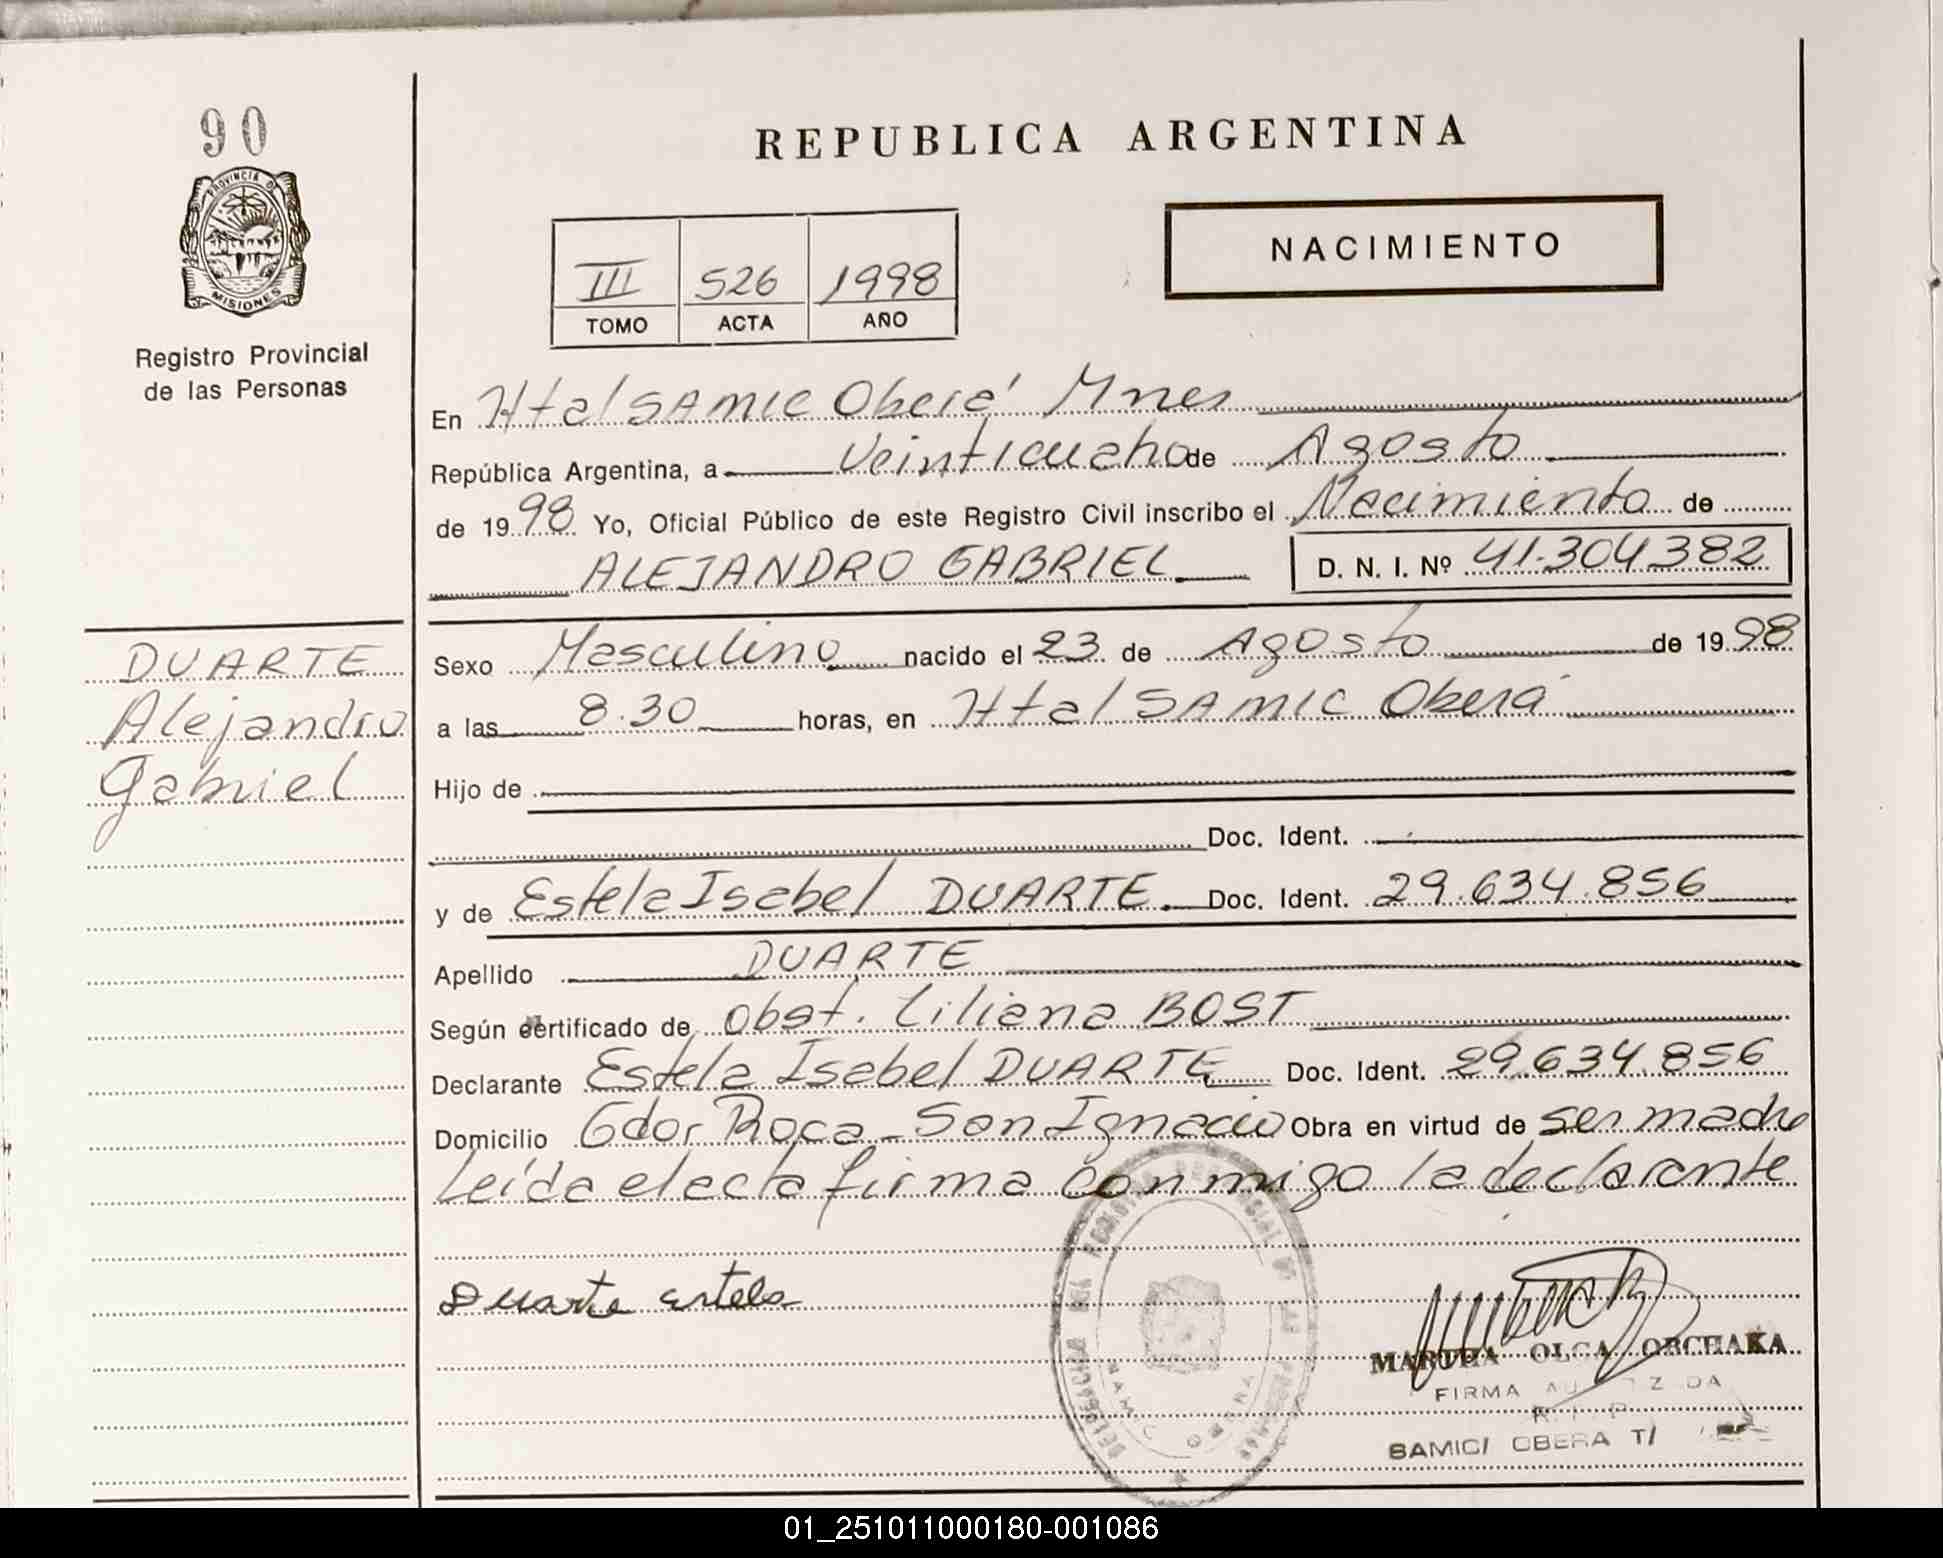 90
PROVINCIA DE
MISIONES
Registro Provincial
de las Personas
DUARTE
Alejandro
Gabriel
REPUBLICA ARGENTINA
NACIMIENTO
III 526 1998
TOMO ACTA AÑO
En Htal SAMIC Oberá Mnes
República Argentina, a Veinticuatro de Agosto
de 1998 Yo, Oficial Público de este Registro Civil inscribo el Nacimiento de
ALEJANDRO GABRIEL D. N. I. Nº 41.304.382
Sexo Masculino nacido el 23 de Agosto de 1998
a las 8.30 horas, en Htal SAMIC Oberá
Hijo de
Doc. Ident.
y de Estela Isabel DUARTE Doc. Ident. 29.634.856
Apellido DUARTE
Según certificado de Obst. Liliana BOST
Declarante Estela Isabel DUARTE Doc. Ident. 29.634.856
Domicilio Gdor Roca - San Ignacio Obra en virtud de ser madre
Leída el acta firma conmigo la declarante
Duarte Estela
MARTHA OLGA ORCHAKA
FIRMA AUTORIZADA
SAMIC/ OBERA T/
01_251011000180-001086